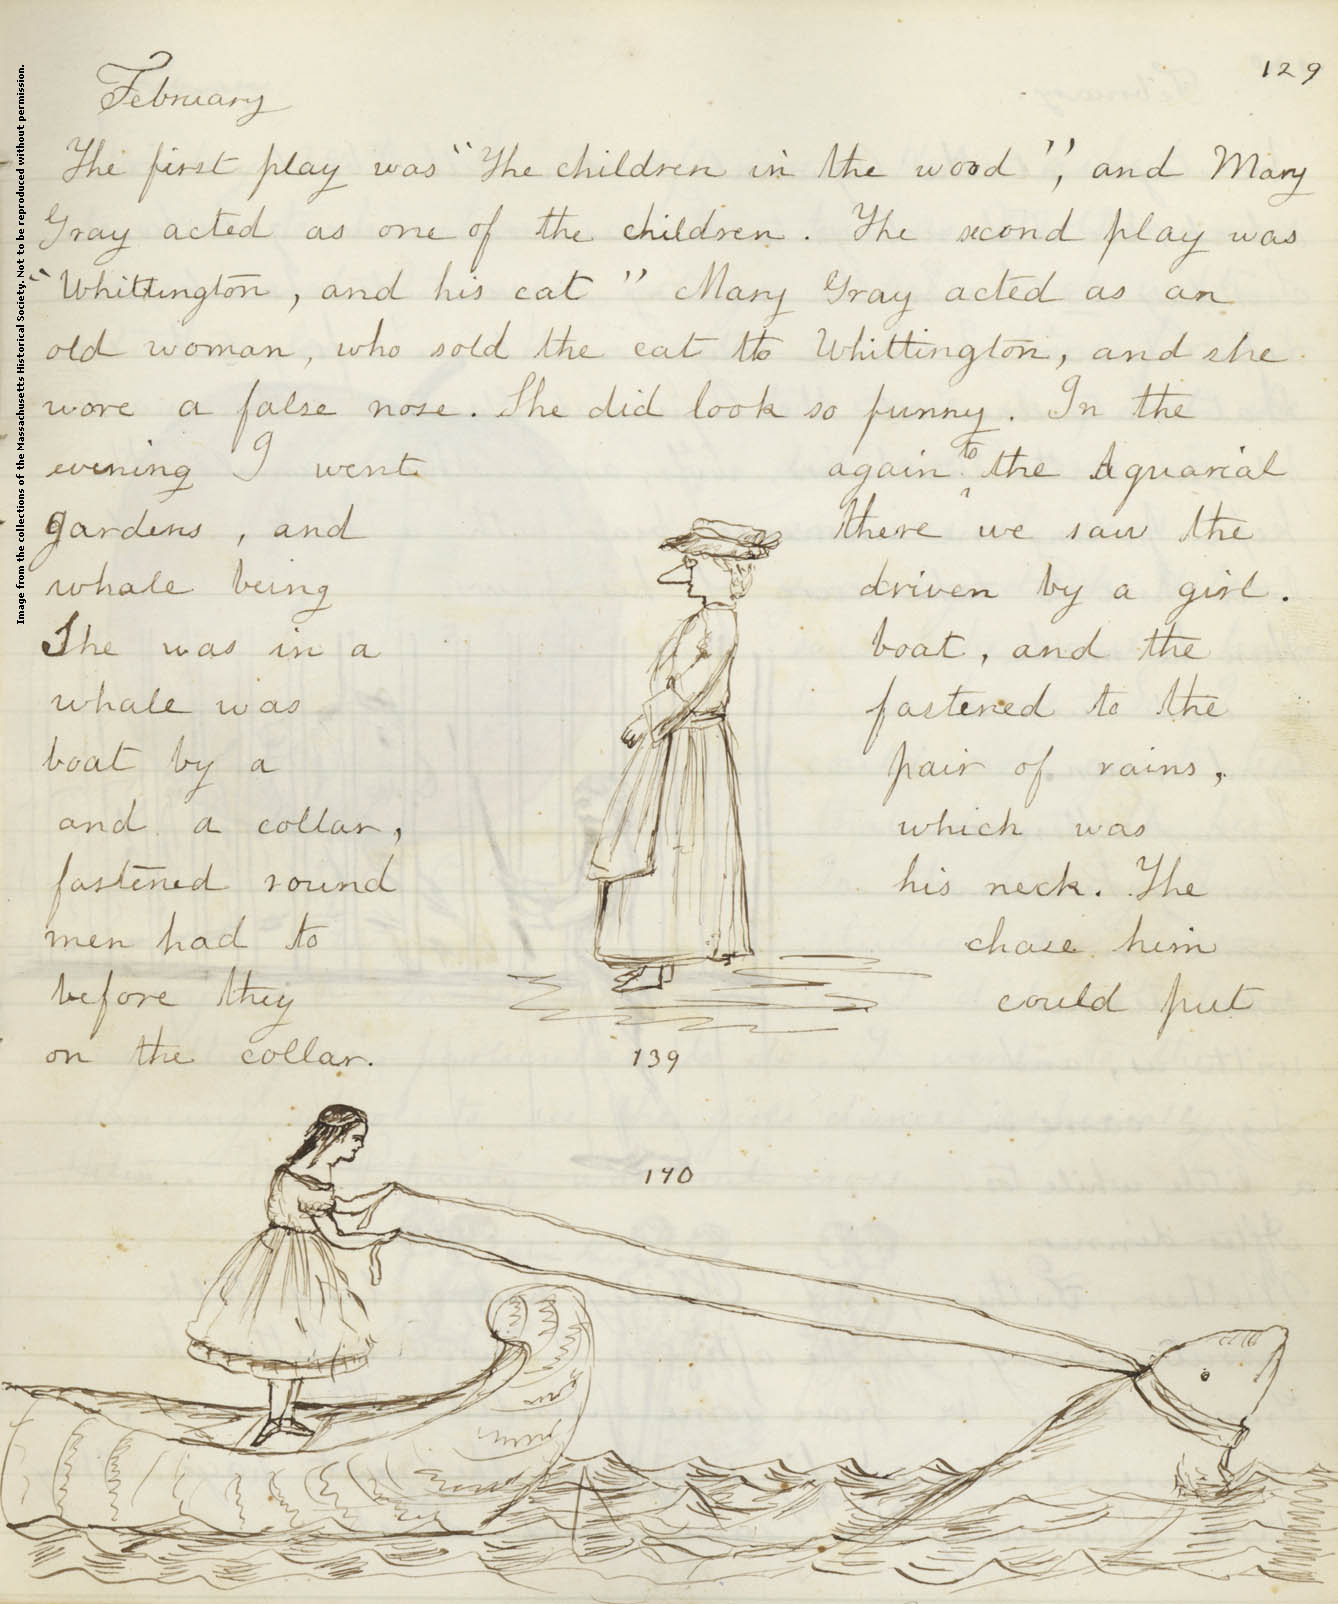 129
February
The first play was "The children in the wood", and Mary
Gray acted as one of the children. The second play was
"Whittington, and his cat" Mary Gray acted as an
old woman, who sold the cat to Whittington, and she
wore a false nose. She did look so funny. In the
evening I went again to the Aquarial
gardens, and there we saw the
whale being driven by a girl.
She was in a boat, and the
whale was fastened to the
boat by a pair of rains,
and a collar, which was
fastened round his neck. The
men had to chase him
before they could put
on the collar.
139
140
Image from the collections of the Massachusetts Historical Society. Not to be reproduced without permission.